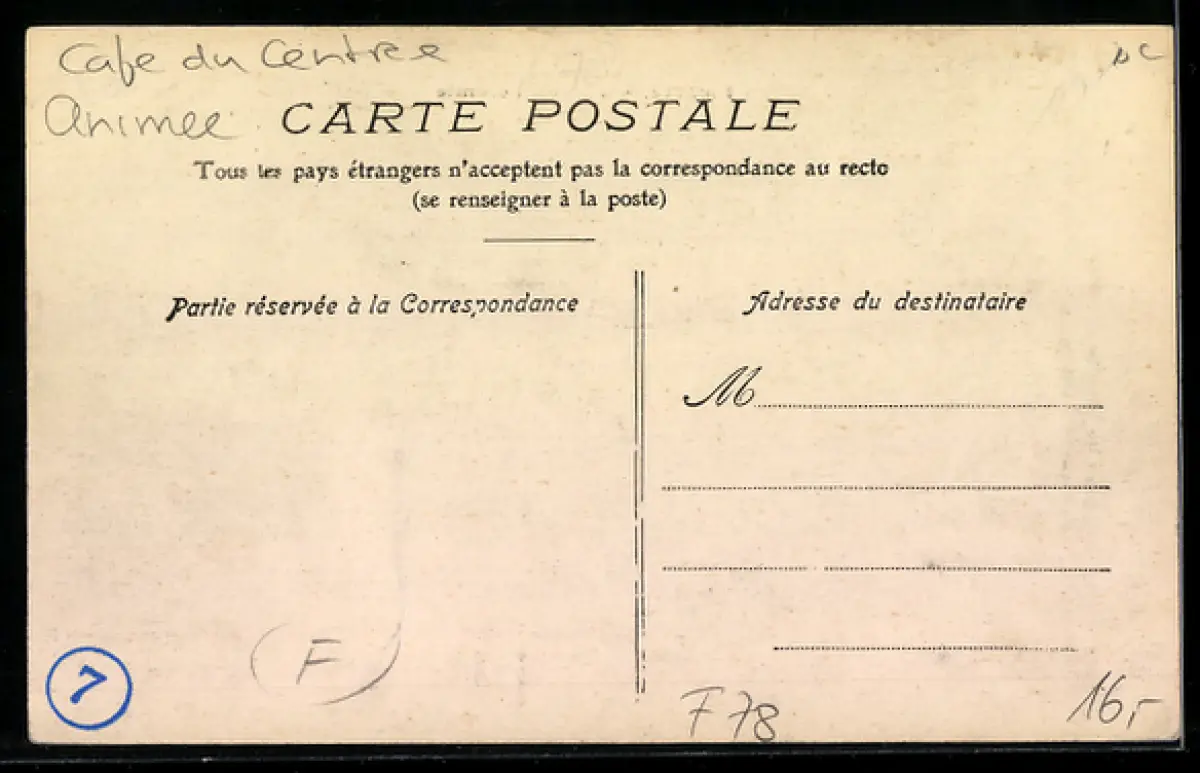 Cafe du Centre
Animee
CARTE POSTALE
Tous les pays étrangers n'acceptent pas la correspondance au recto
(se renseigner à la poste)
Partie réservée à la Correspondance
Adresse du destinataire
M
F
7
F 78
16,-